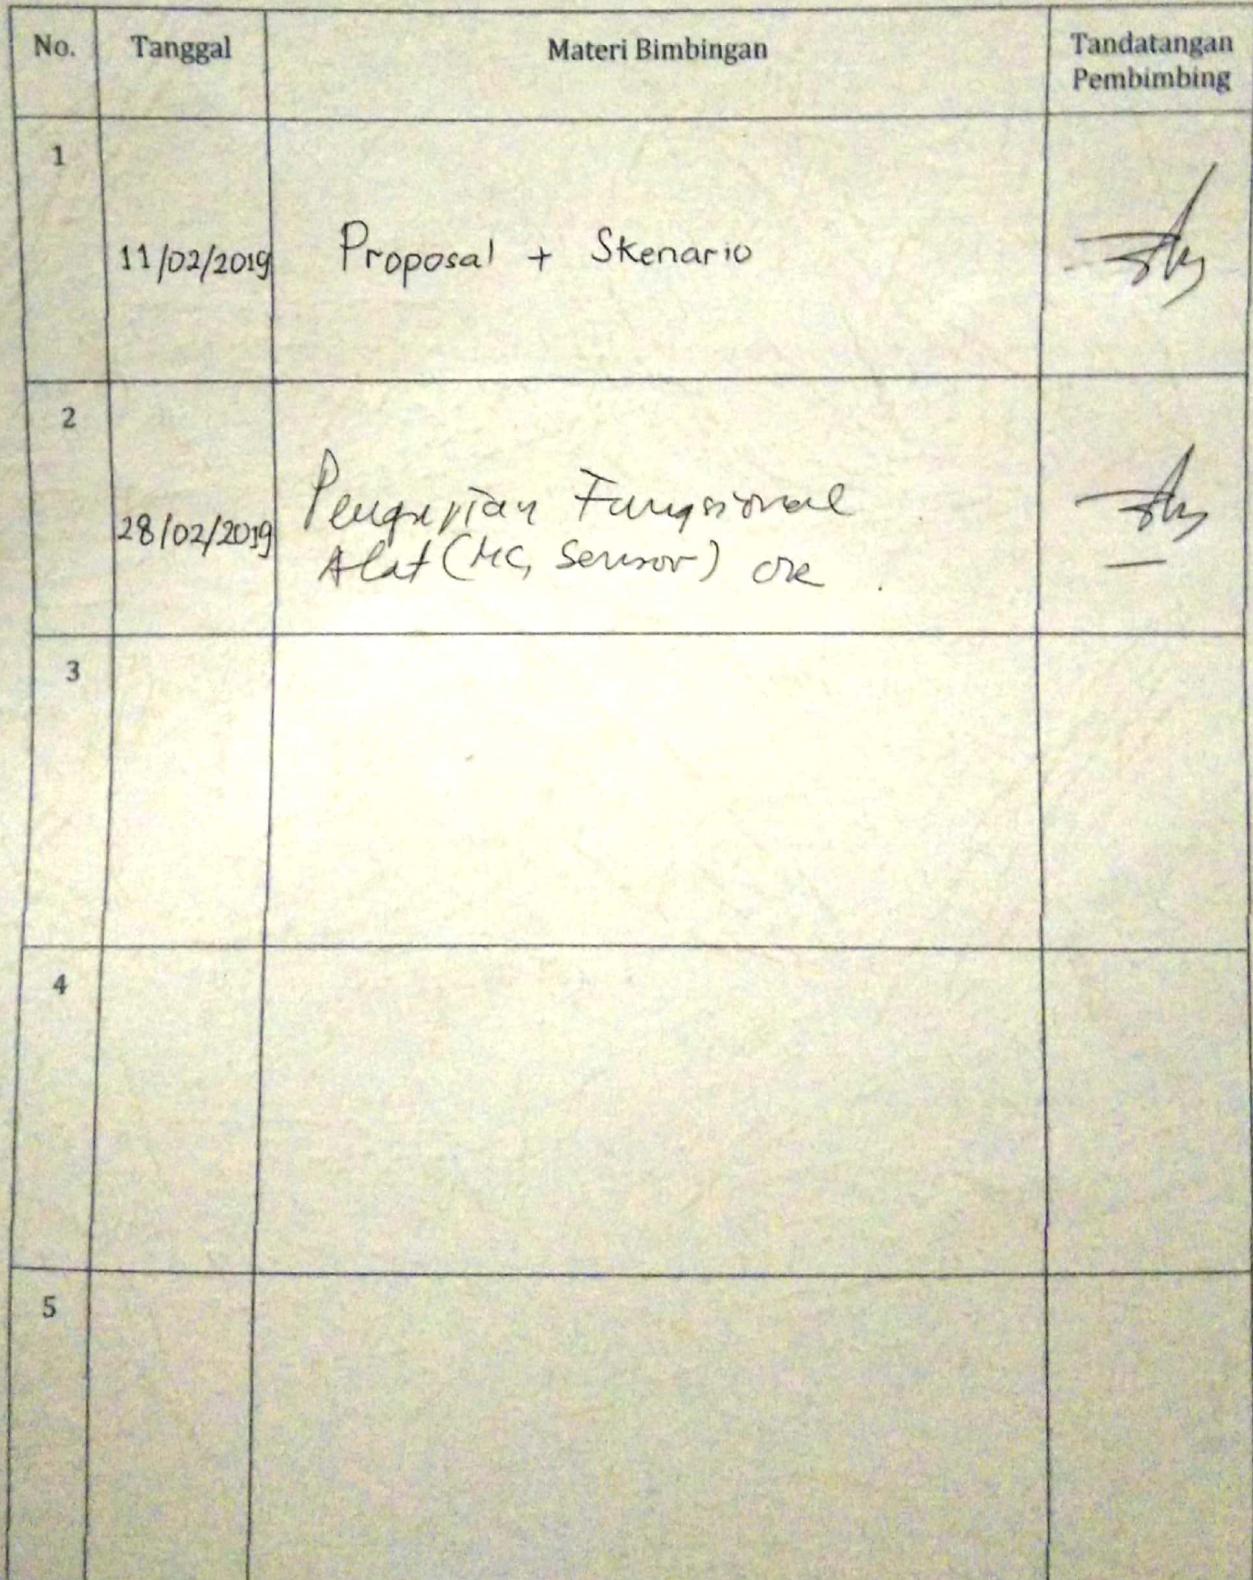 No. Tanggal Materi Bimbingan Tandatangan
Pembimbing
1
11/02/2019 Proposal + Skenario
2
28/02/2019 Pengujian Fungsional
Alat (MC, Sensor) oke
3
4
5